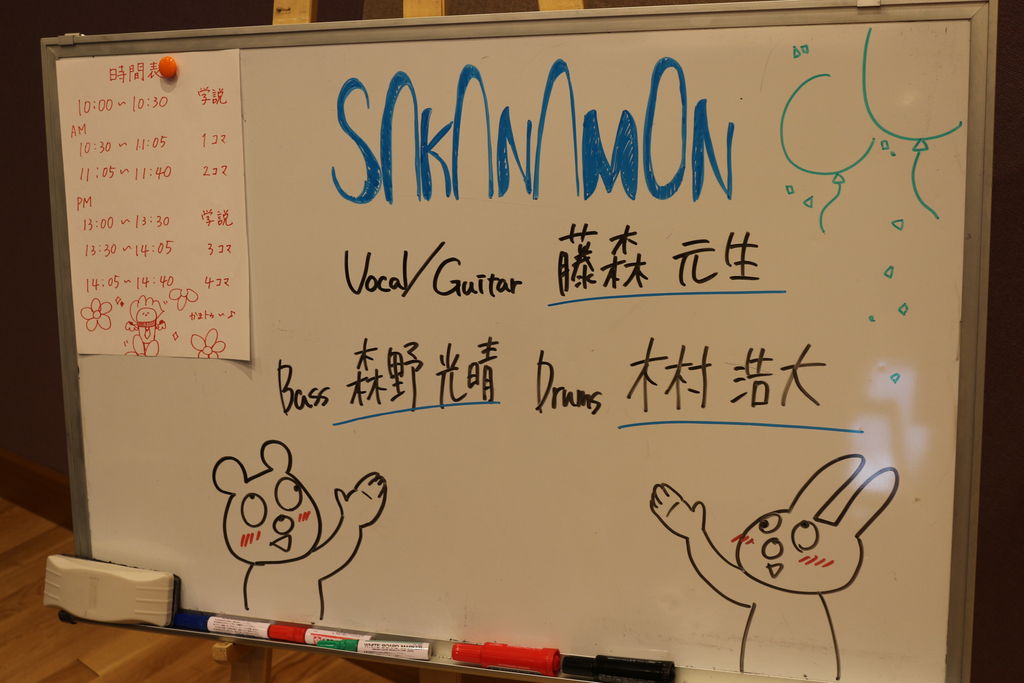 時間表
10:00～10:30 学説
AM
10:30～11:05 1コマ
11:05～11:40 2コマ
PM
13:00～13:30 学説
13:30～14:05 3コマ
14:05～14:40 4コマ
SAKANAMON
Vocal/Guitar 藤森 元生
Bass 森野 光晴 Drums 木村 浩大
WHITE BOARD MARKER